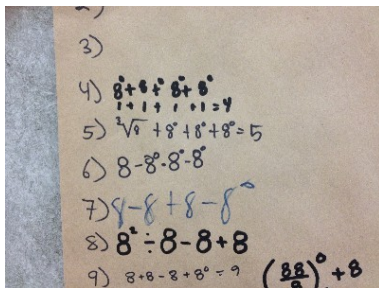 3)
4) 8⁰+8⁰+8⁰+8⁰
1+1+1+1=4
5) ³√8+8⁰+8⁰+8⁰=5
6) 8-8⁰-8⁰-8⁰
7) 8-8+8-8⁰
8) 8²÷8-8+8
9) 8+8-8+8⁰=9 (88/8)⁰+8